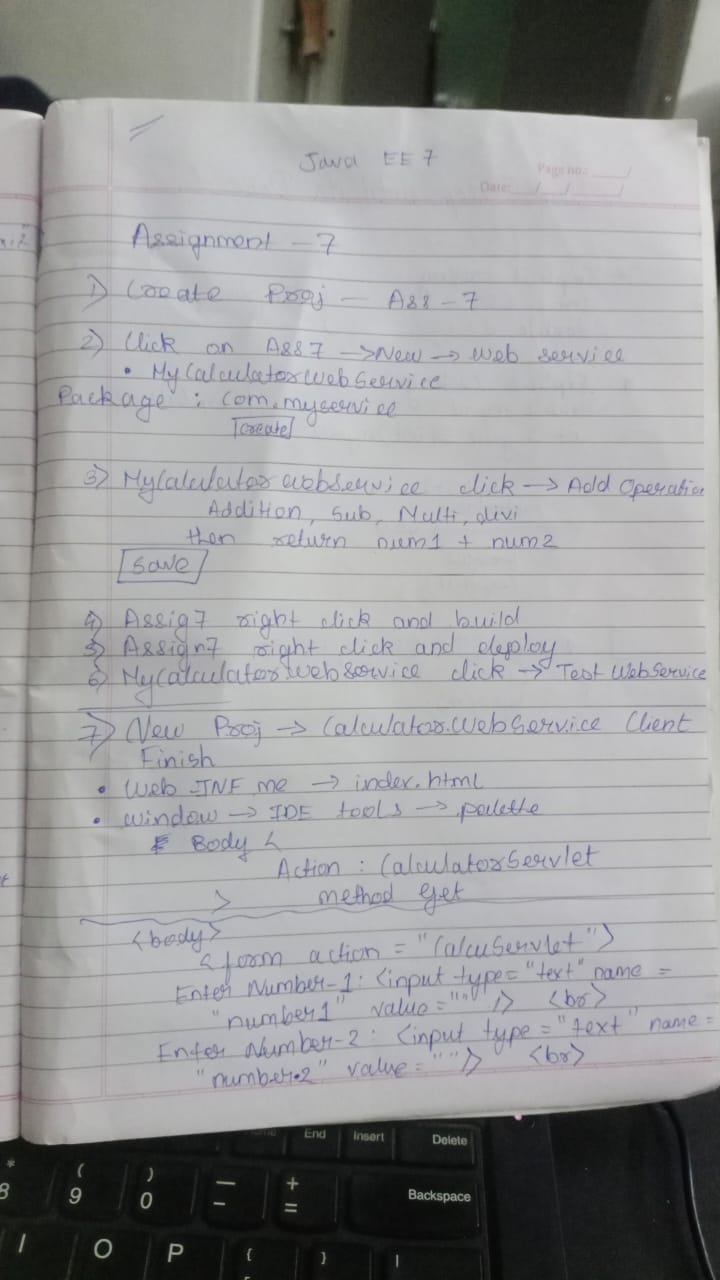 Java EE 7
Page no.: /
Date: / /
Assignment - 7
1) Create Proj - Ass - 7
2) Click on Ass 7 -> New -> Web service
• MyCalculatorWebService
Package : com.myservice
Create
3) MyCalculatorwebservice click -> Add Operation
Addition, Sub, Multi, divi
then return num1 + num2
Save
4) Assig7 right click and build
5) Assign7 right click and deploy
6) MyCalculatorwebservice click -> Test WebService
7) New Proj -> CalculatorWebService Client
Finish
• Web INF me -> index.html
• window -> IDE tools -> palette
Body <
Action : CalculatorServlet
> method get
<body>
< form action = "CalcuServlet">
Enter Number-1: <input type="text" name =
"number1" value="" /> <br>
Enter Number-2: <input type="text" name=
"number2" value=""> <br>
End
Insert
Delete
*
8
(
9
)
0
—
-
+
=
Backspace
I
O
P
{
}